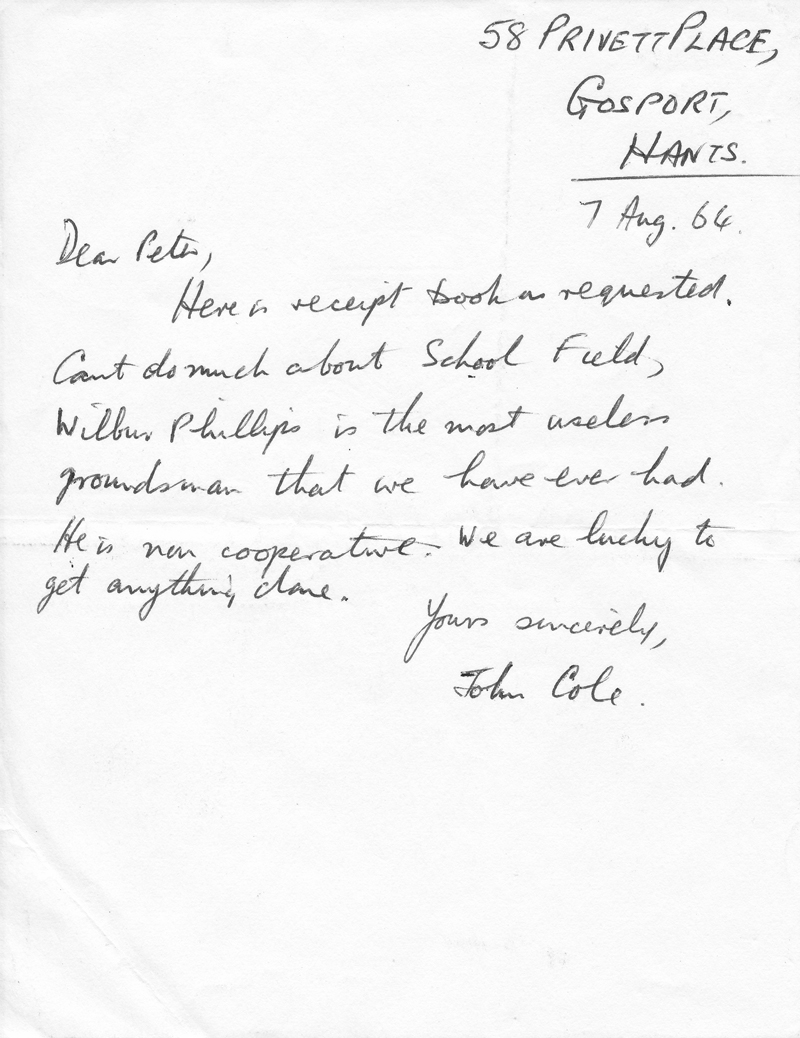 58 PRIVETT PLACE,
GOSPORT,
HANTS.
7 Aug. 64.
Dear Peter,
Here is receipt book as requested.
Cant do much about School Field,
Wilbur Phillips is the most useless
groundsman that we have ever had.
He is non cooperative. We are lucky to
get anything done.
Yours sincerely,
John Cole.